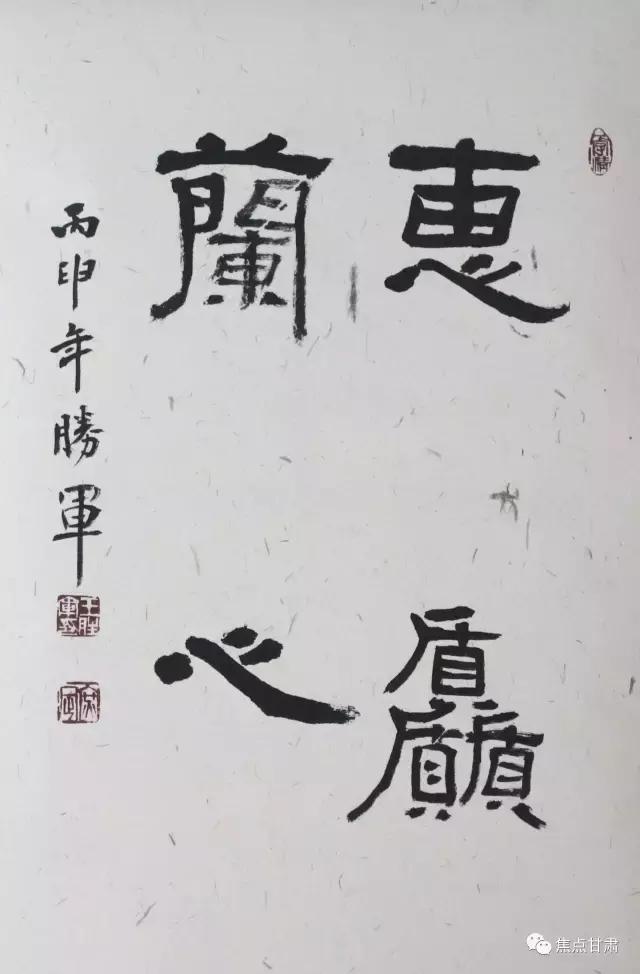 恵
蘭心
丙申年勝軍
焦点甘肃